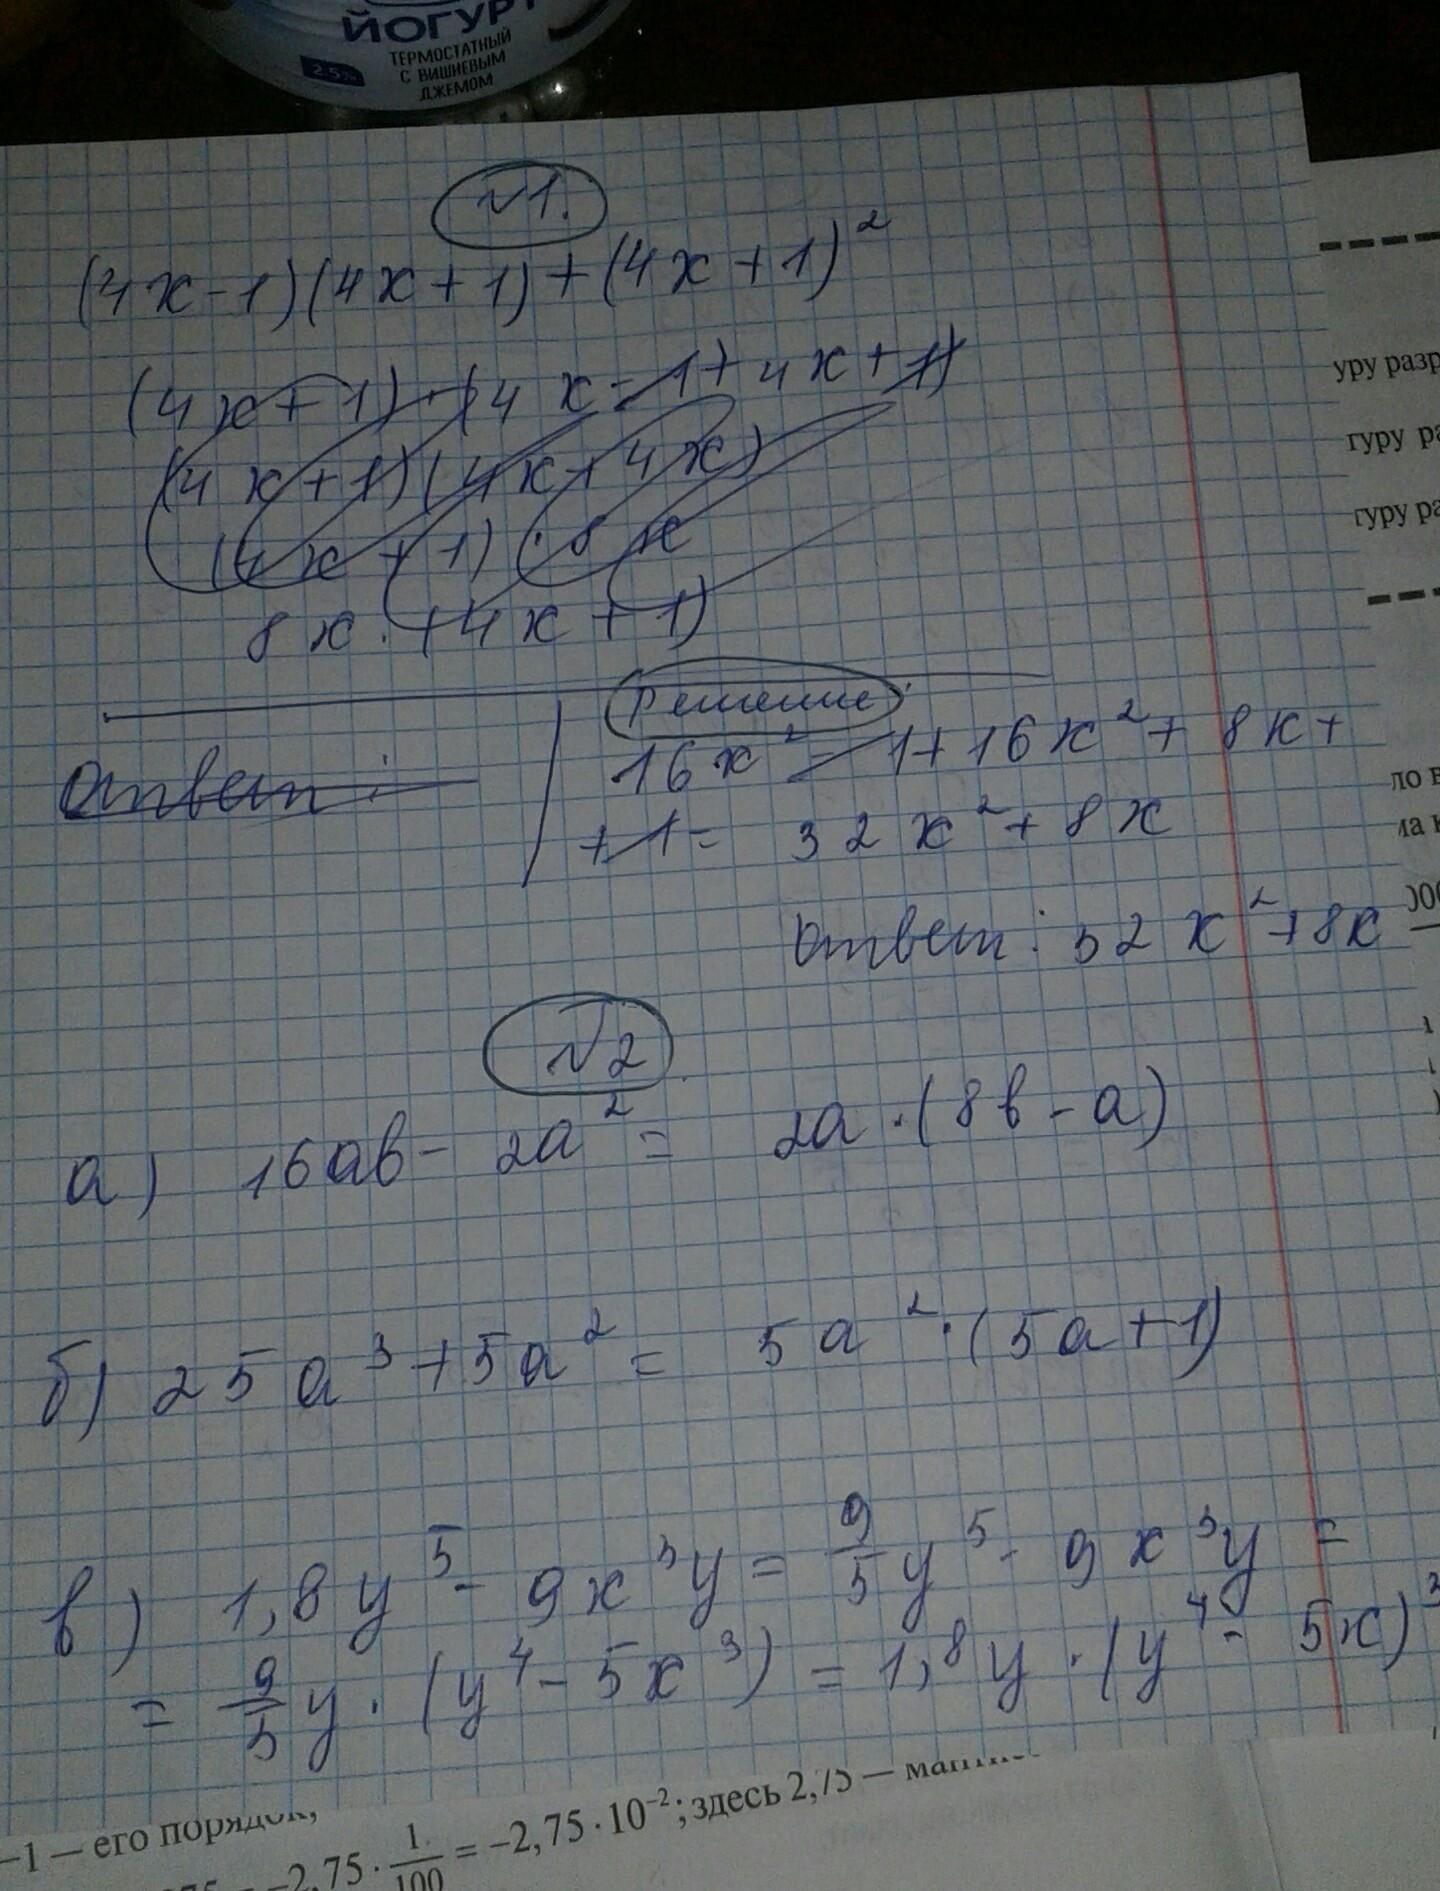 ЙОГУРТ
2.5%
ТЕРМОСТАТНЫЙ
С ВИШНЕВЫМ
ДЖЕМОМ
№1.
(4x-1)(4x+1)+(4x+1)²
(4x+1)·(4x-1+4x+1)
(4x+1)(4x+4x)
(4x+1)·8x
8x·(4x+1)
Ответ:
Решение
16x²-1+16x²+8x+
+1= 32x²+8x
Ответ: 32x²+8x
№2
а) 16ab-2a²= 2a·(8b-a)
б) 25a³+5a²= 5a²·(5a+1)
в) 1,8y⁵-9x³y= 9/5y⁵-9x³y=
= 9/5y·(y⁴-5x³)=1,8y·(y⁴-5x)³
уру разр
гуру ра
гуру ра
ло в
ла к
-1 — его порядок,
-2,75·1/100=-2,75·10⁻²; здесь 2,75 —